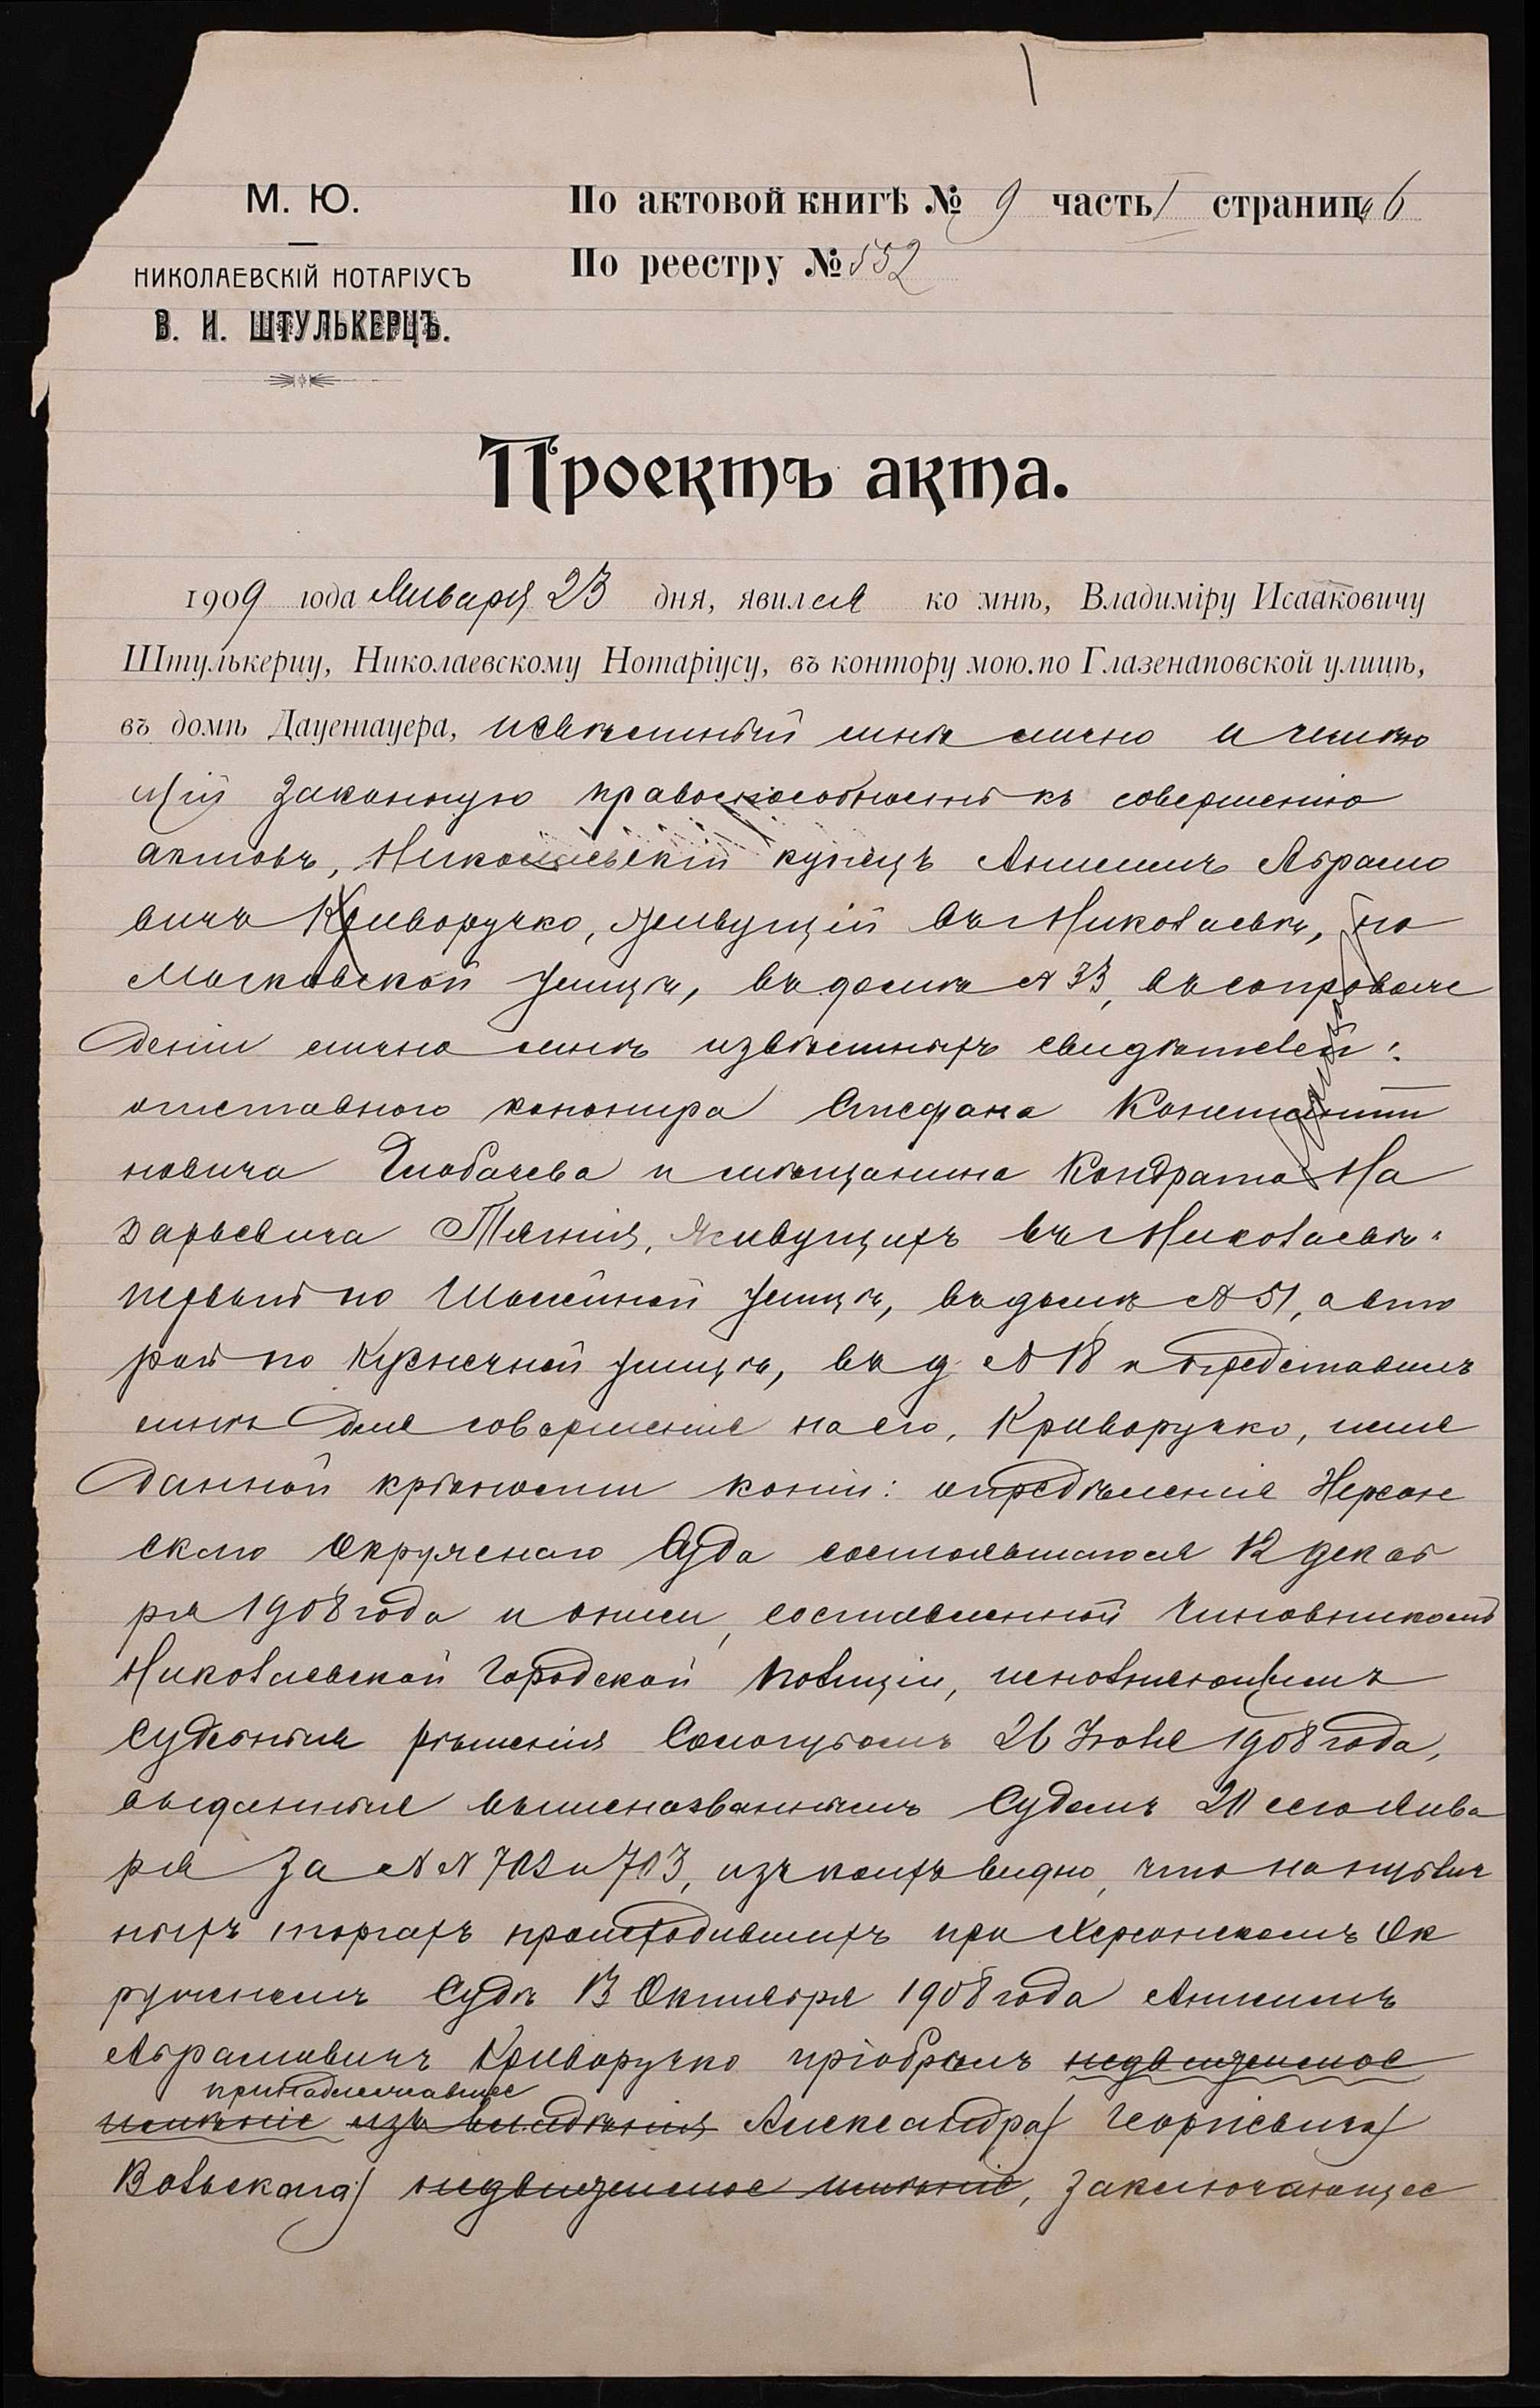 М. Ю.
НИКОЛАЕВСКІЙ НОТАРІУСЪ
В. И. ШТУЛЬКЕРЦЪ.
По актовой книгѣ № 9 часть I страниц 6
По реестру № 552
Проектъ акта.
1909 года Января 23 дня, явился ко мнѣ, Владиміру Исааковичу
Штулькерцу, Николаевскому Нотаріусу, въ контору мою по Глазенаповской улицѣ,
въ домѣ Дауенгауера, извѣстный мнѣ лично и имѣю
щій законную правоспособность къ совершенію
актовъ, Николаевскій купецъ Анисимъ Абрамо
вичъ Криворучко, живущій въ Николаевѣ, по
Московской улицѣ, въ домѣ № 33, въ сопровож
деніи лично мнѣ извѣстныхъ свидѣтелей:
отставного канонира Стефана Констант
новича Глобачева и мѣщанина Кондрата На
зарьевича живущихъ въ Николаевѣ:
первый по Шоссейной улицѣ, въ домѣ № 51, а вто
рой по Кузнечной улицѣ, въ д. № 18 и представилъ
мнѣ для совершенія на его, Криворучко, имя
данной крѣпости копіи: опредѣленія Херсон
скаго Окружнаго Суда состоявшагося 12 декаб
ря 1908 года и описи, составленной Чиновникомъ
Николаевской Городской Полиціи, исполняющимъ
судебныя рѣшенія 26 Іюля 1908 года,
выданныя вышеназваннымъ Судомъ 20 сего Янва
ря за №№ 702 и 703, изъ коихъ видно, что на публич
ныхъ торгахъ происходившихъ при Херсонскомъ Ок
ружномъ Судѣ 13 Октября 1908 года Анисимъ
Абрамовичъ Криворучко пріобрѣлъ недвижимое
принадлежавшее
имѣніе изъ владѣнія Александра Георгіевича
Вольскага недвижимое имѣніе, заключающее